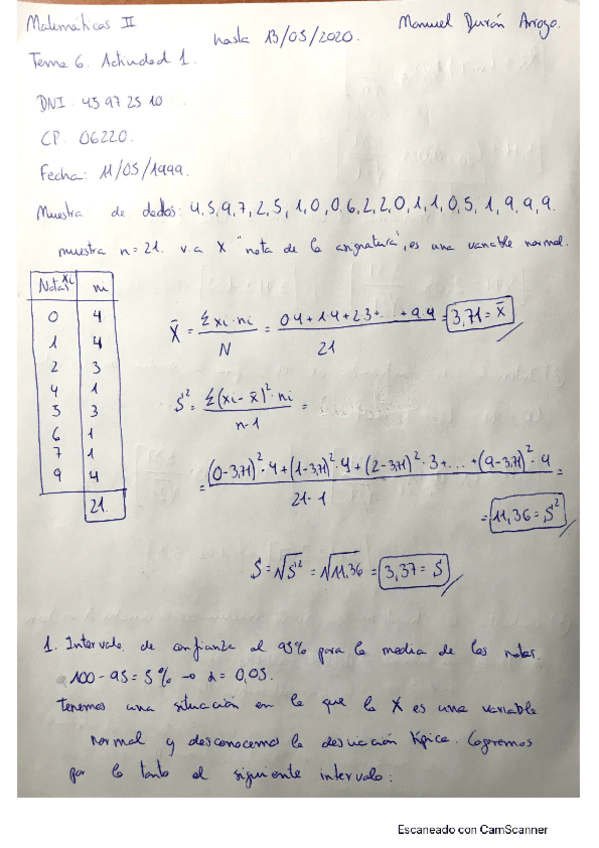 Matemáticas II
hasta 13/05/2020.
Manuel Durán Arroyo.
Tema 6. Actividad 1.
DNI: 45 97 25 10
CP. 06220.
Fecha: 11/05/1999.
Muestra de datos: 4,5,9,7,2,5,1,0,0,6,2,2,0,1,1,0,5,1,9,9,9.
muestra n=21. v.a X "nota de la asignatura", es una variable normal.
Notas xi ni
0 4
1 4
2 3
4 1
5 3
6 1
7 1
9 4
21.
X̄ = Σxi·ni / N = 0·4+1·4+2·3+...+9·4 / 21 = 3,71 = X̄
S'² = Σ(xi-x̄)²·ni / n-1 =
= (0-3,71)²·4+(1-3,71)²·4+(2-3,71)²·3+...+(9-3,71)²·4 / 21-1 =
= 11,36 = S'²
S = √S'² = √11,36 = 3,37 = S
1. Intervalo de confianza al 95% para la media de las notas.
100-95=5% → α=0,05.
Tenemos una situación en la que la X es una variable
normal y desconocemos la desviación típica. Cogeremos
por lo tanto el siguiente intervalo:
Escaneado con CamScanner